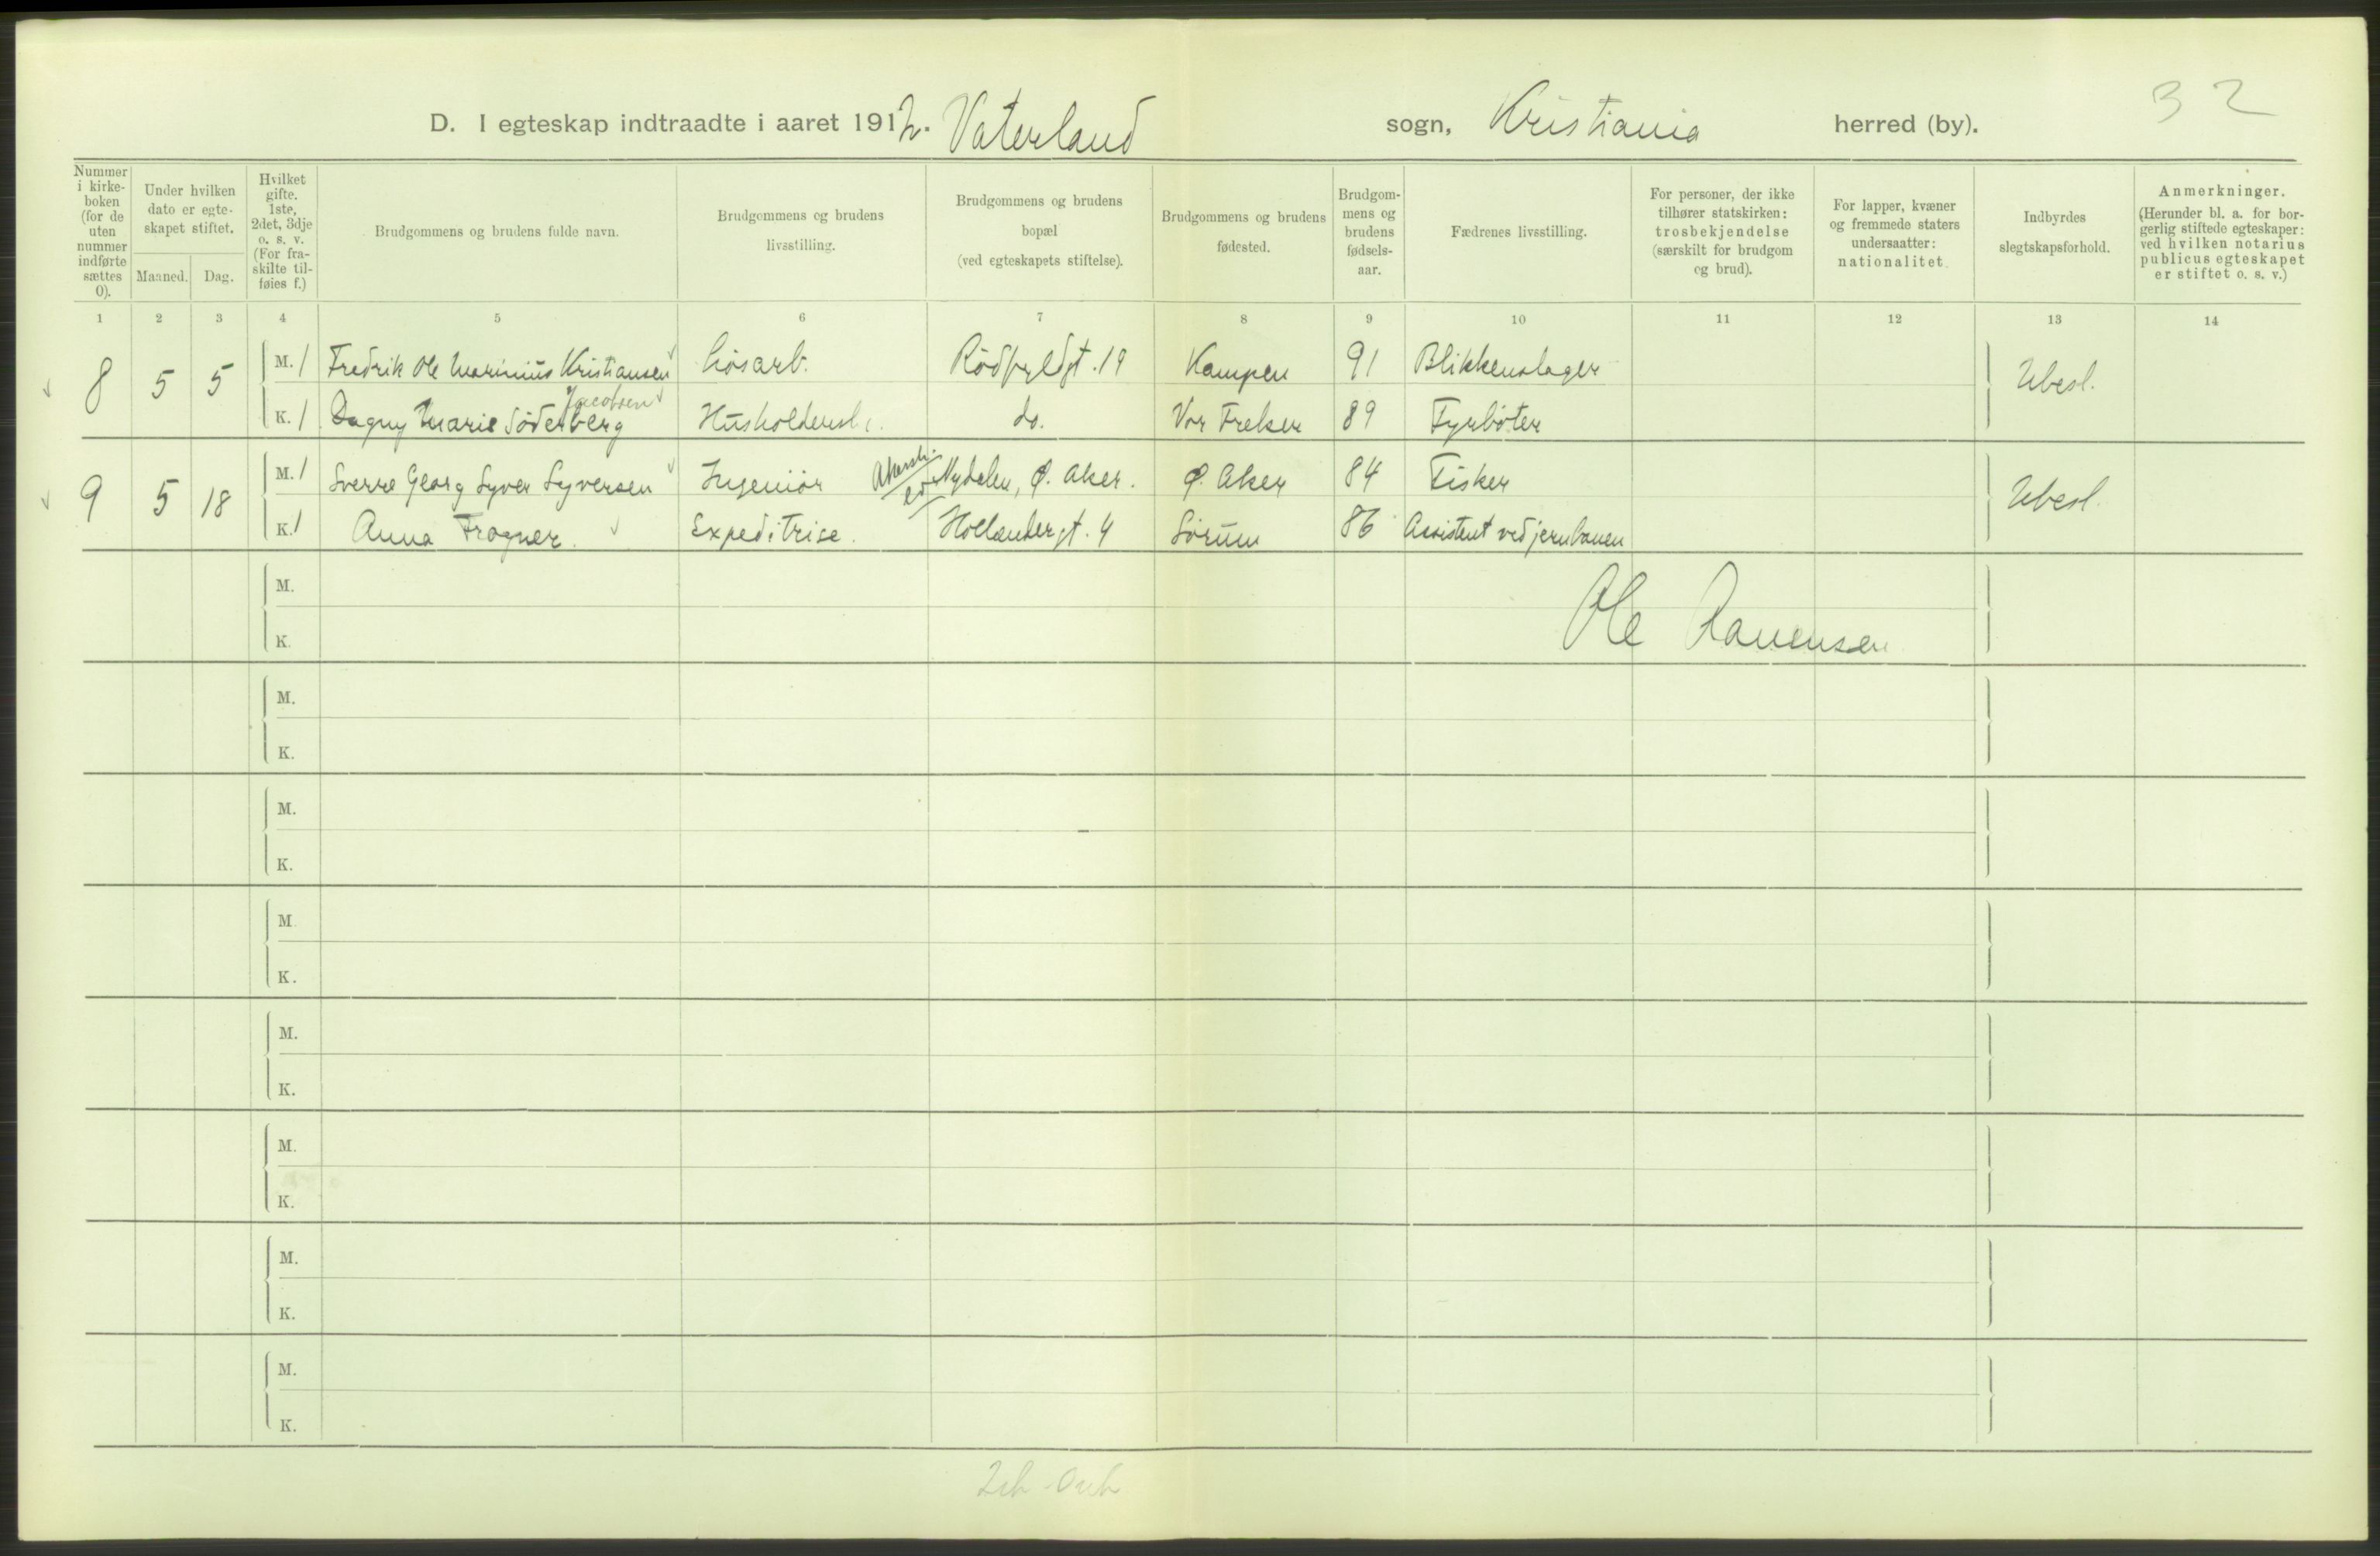 32
D. I egteskap indtraadte i aaret 1912. Vaterland sogn, Kristiania herred (by).
Nummer i kirke-boken (for de uten nummer indførte sættes 0).
Under hvilken dato er egte-skapet stiftet.
Maaned. Dag.
Hvilket gifte. 1ste, 2det, 3dje o. s. v. (For fra-skilte til-føies f.)
Brudgommens og brudens fulde navn.
Brudgommens og brudens livsstilling.
Brudgommens og brudens bopæl (ved egteskapets stiftelse).
Brudgommens og brudens fødested.
Brudgom-mens og brudens fødsels-aar.
Fædrenes livsstilling.
For personer, der ikke tilhører statskirken: trosbekjendelse (særskilt for brudgom og brud).
For lapper, kvæner og fremmede staters undersaatter: nationalitet.
Indbyrdes slegtskapsforhold.
Anmerkninger. (Herunder bl. a. for bor-gerlig stiftede egteskaper: ved hvilken notarius publicus egteskapet er stiftet o. s. v.)
1 2 3 4 5 6 7 8 9 10 11 12 13 14
8 5 5 M. 1 Fredrik Ole Marinius Kristiansen Løsarb. Rødfyldgt. 19 Kampen 91 Blikkenslager Ubesl.
Jacobsen
K. 1 Dagny Marie Söderberg Husholdersk. do. Vor Frelser 89 Fyrbøter
9 5 18 M. 1 Sverre Georg Syver Syversen Ingeniør Nydalen, Ø. Aker. Ø. Aker 84 Fisker Ubesl.
K. 1 Anna Frogner. Expeditrise. Hollendergt. 4 Sørum 86 Assistent ved jernbanen
M.
Ole
K.
M.
K.
M.
K.
M.
K.
M.
K.
M.
K.
M.
K.
M.
K.